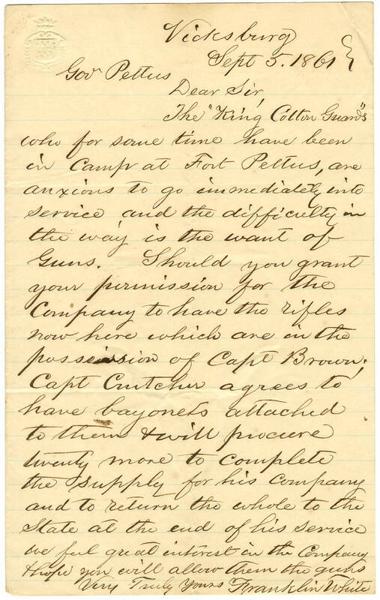 Vicksburg
Sept 5. 1861
Gov Pettus
Dear Sir,
The "King Cotton Guards"
who for some time have been
in Camp at Fort Pettus, are
anxious to go immediately into
service and the difficulty in
the way is the want of
Guns. Should you grant
your permission for the
Company to have the rifles
now here which are in the
possession of Capt Brown,
Capt Crutcher agrees to
have bayonets attached
to them & will procure
twenty more to complete
the supply for his company
and to return the whole to the
State at the end of his service
we feel great interest in the Company
& hope you will allow them the guns
Very Truly Yours Franklin White